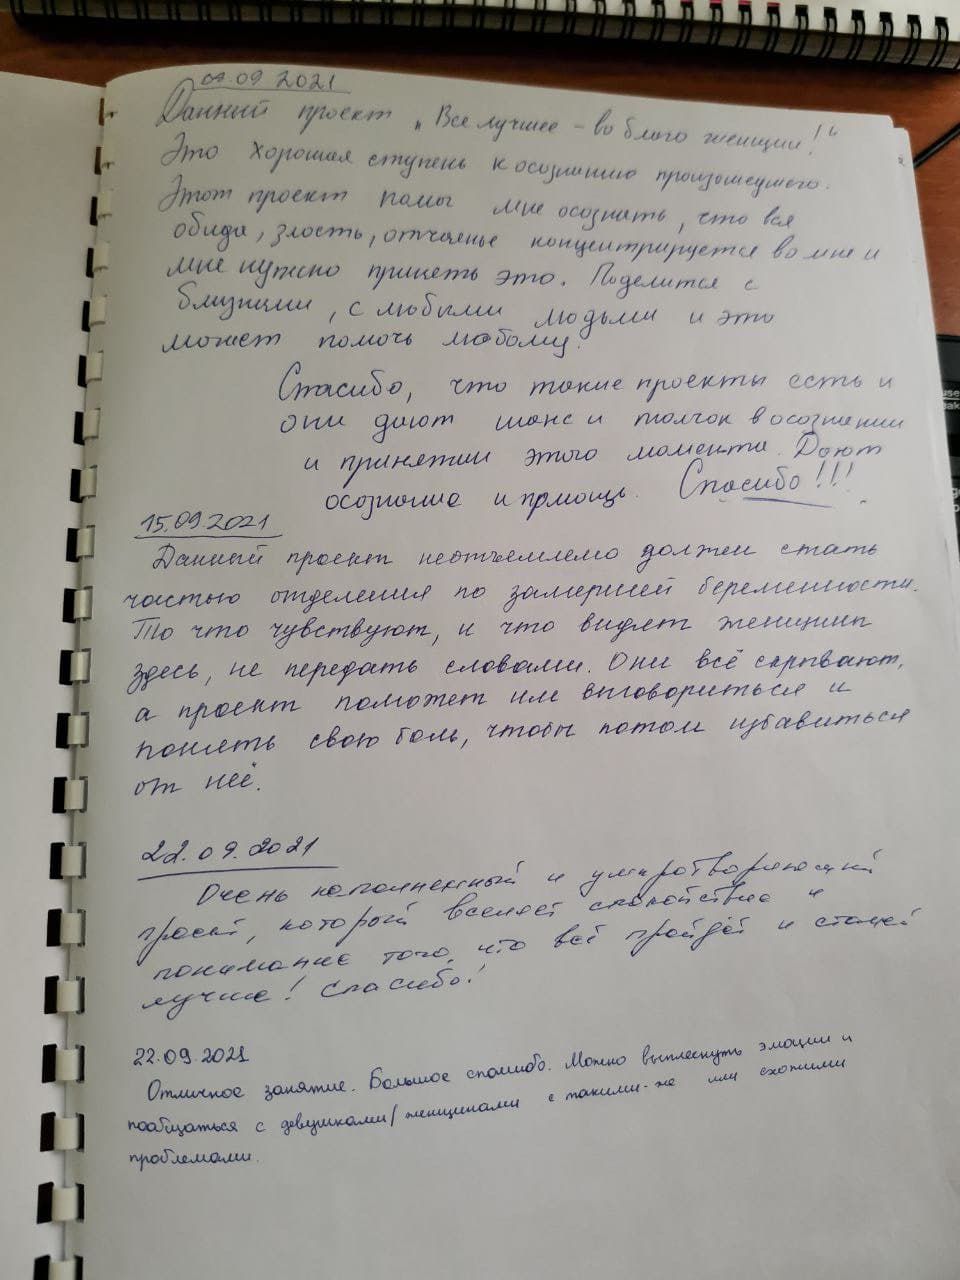 09.09.2021
Данный проект „Все лучшее – во благо женщин!“
Это хорошая ступень к осознанию произошедшего.
Этот проект помог мне осознать, что вся
обида, злость, отчаянье концентрируется во мне и
мне нужно принять это. Поделится с
близкими, с любыми людьми и это
может помочь любому.
Спасибо, что такие проекты есть и
они дают шанс и толчок в осознании
и принятии этого момента. Дают
осознание и помощь. Спасибо!!!
15.09.2021
Данный проект неотъемлемо должен стать
частью отделения по замершей беременности.
То что чувствуют, и что видят женщины
здесь, не передать словами. Они всё скрывают,
а проект поможет им выговориться и
понять свою боль, чтобы потом избавиться
от неё.
22.09.2021
Очень наполненный и умиротворяющий
проект, который вселяет спокойствие и
понимание того, что всё пройдёт и станет
лучше! Спасибо!
22.09.2021
Отличное занятие. Большое спасибо. Можно выплеснуть эмоции и
пообщаться с девушками/женщинами с такими-же или схожими
проблемами.